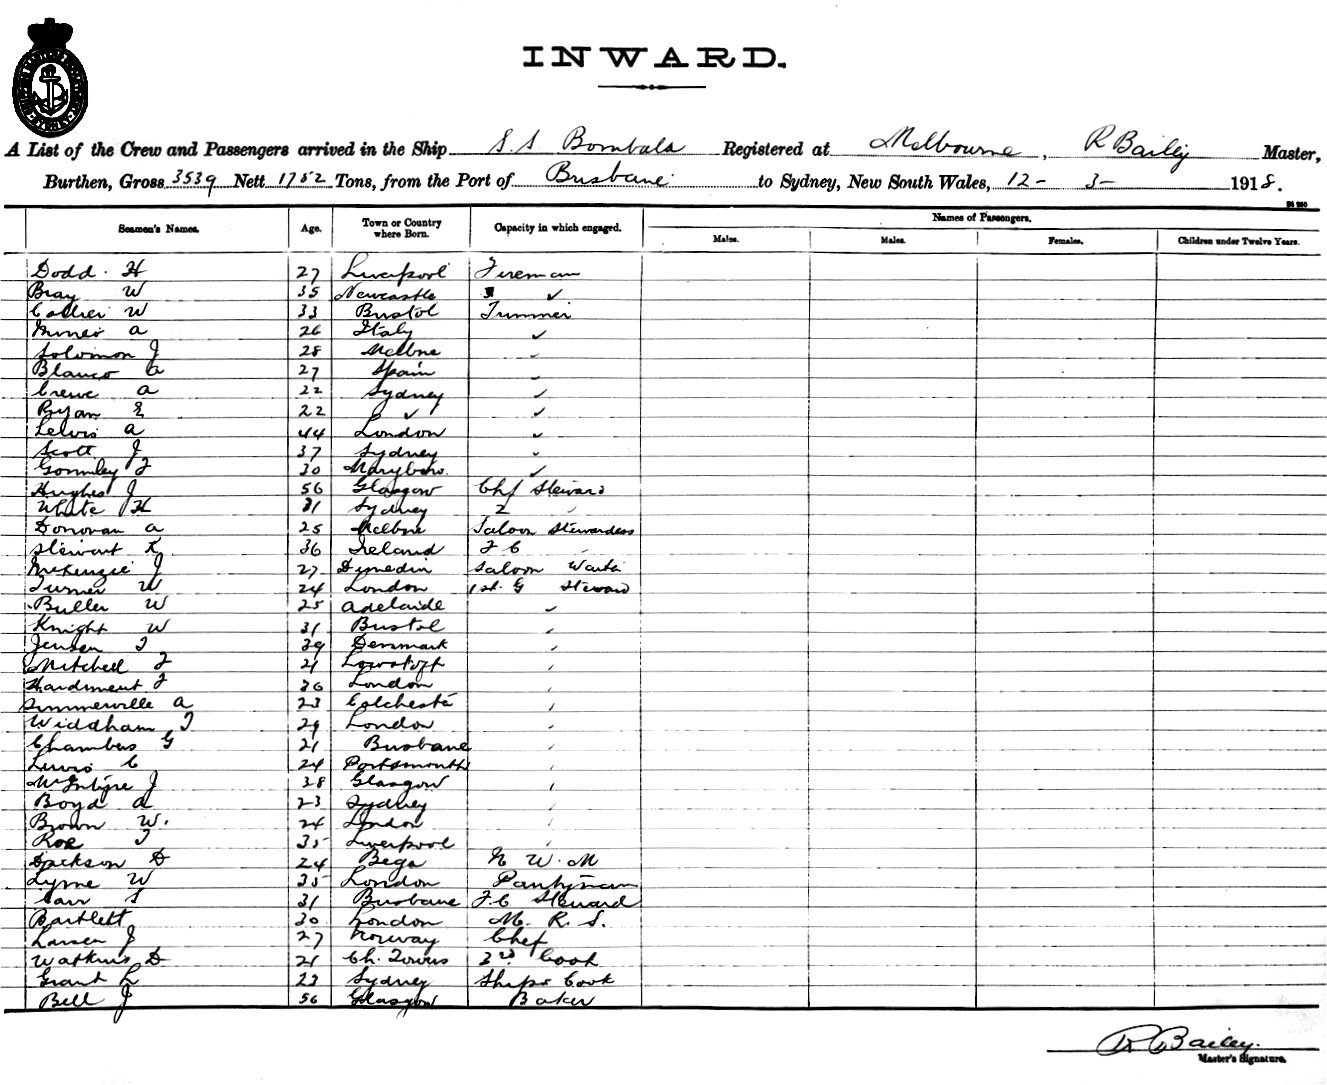 INWARD.
A List of the Crew and Passengers arrived in the Ship S. S Bombala Registered at Melbourne, R Bailey Master,
Burthen, Gross 3539 Nett 1752 Tons, from the Port of Brisbane to Sydney, New South Wales, 12 - 3 - 1918.
Names of Passengers.
Seamen's Names. Age. Town or Country where Born. Capacity in which engaged. Males. Males. Females. Children under Twelve Years.
Dodd. H 27 Liverpool Fireman
Bray W 35 Newcastle ✓
Collier W 33 Bristol Trimmer
A 26 Italy ✓
Solomon J 28 Melbne ✓
Blanco A 27 Spain ✓
Crewe A 22 Sydney ✓
Ryan E 22 ✓ ✓
Lewis A 44 London ✓
Scott J 37 Sydney ✓
Gormley F 30 Maryboro. ✓
Hughes J 56 Glasgow Chf Steward
White H 31 Sydney 2 ✓
Donovan A 25 Melbne Saloon Stewardess
Stewart K 36 Ireland F C
McKenzie J 27 Dunedin Saloon Waiter
Turner W 24 London 1st. G Steward
Buller W 25 Adelaide ✓
Knight W 31 Bristol
Jensen T 39 Denmark
Mitchell F 21 Lowestoft
Hardment F 36 London
Simmerville A 23 Colchester
Widdham T 29 London
Chambers G 21 Brisbane
Lewis C 24 Portsmouth
McIntyre J 38 Glasgow
Boyd A 23 Sydney
Brown W. 24 London
Roe T 35 Liverpool
Jackson D 24 Bega N W. M
Lyme W 35 London Pantryman
Carr S 31 Brisbane F. C Steward
Bartlett 30 London M. R. S.
Larsen J 27 Norway Chef
Watkins D 21 Ch. Towers 3rd Cook
Grant L 23 Sydney Ships Cook
Bell J 56 Glasgow Baker
R Bailey.
Master's Signature.